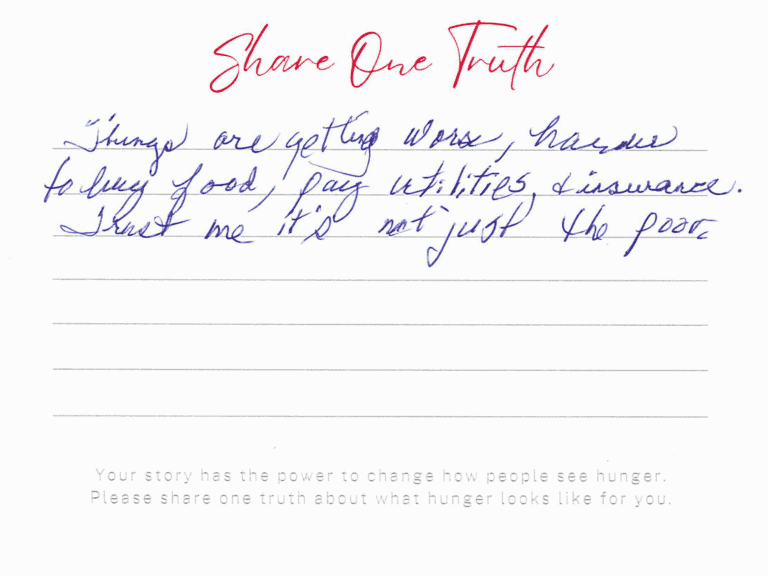 Share One Truth
Things are getting worse, harder
to buy food, pay utilities, & insurance.
Trust me it's not just the poor.
Your story has the power to change how people see hunger.
Please share one truth about what hunger looks like for you.